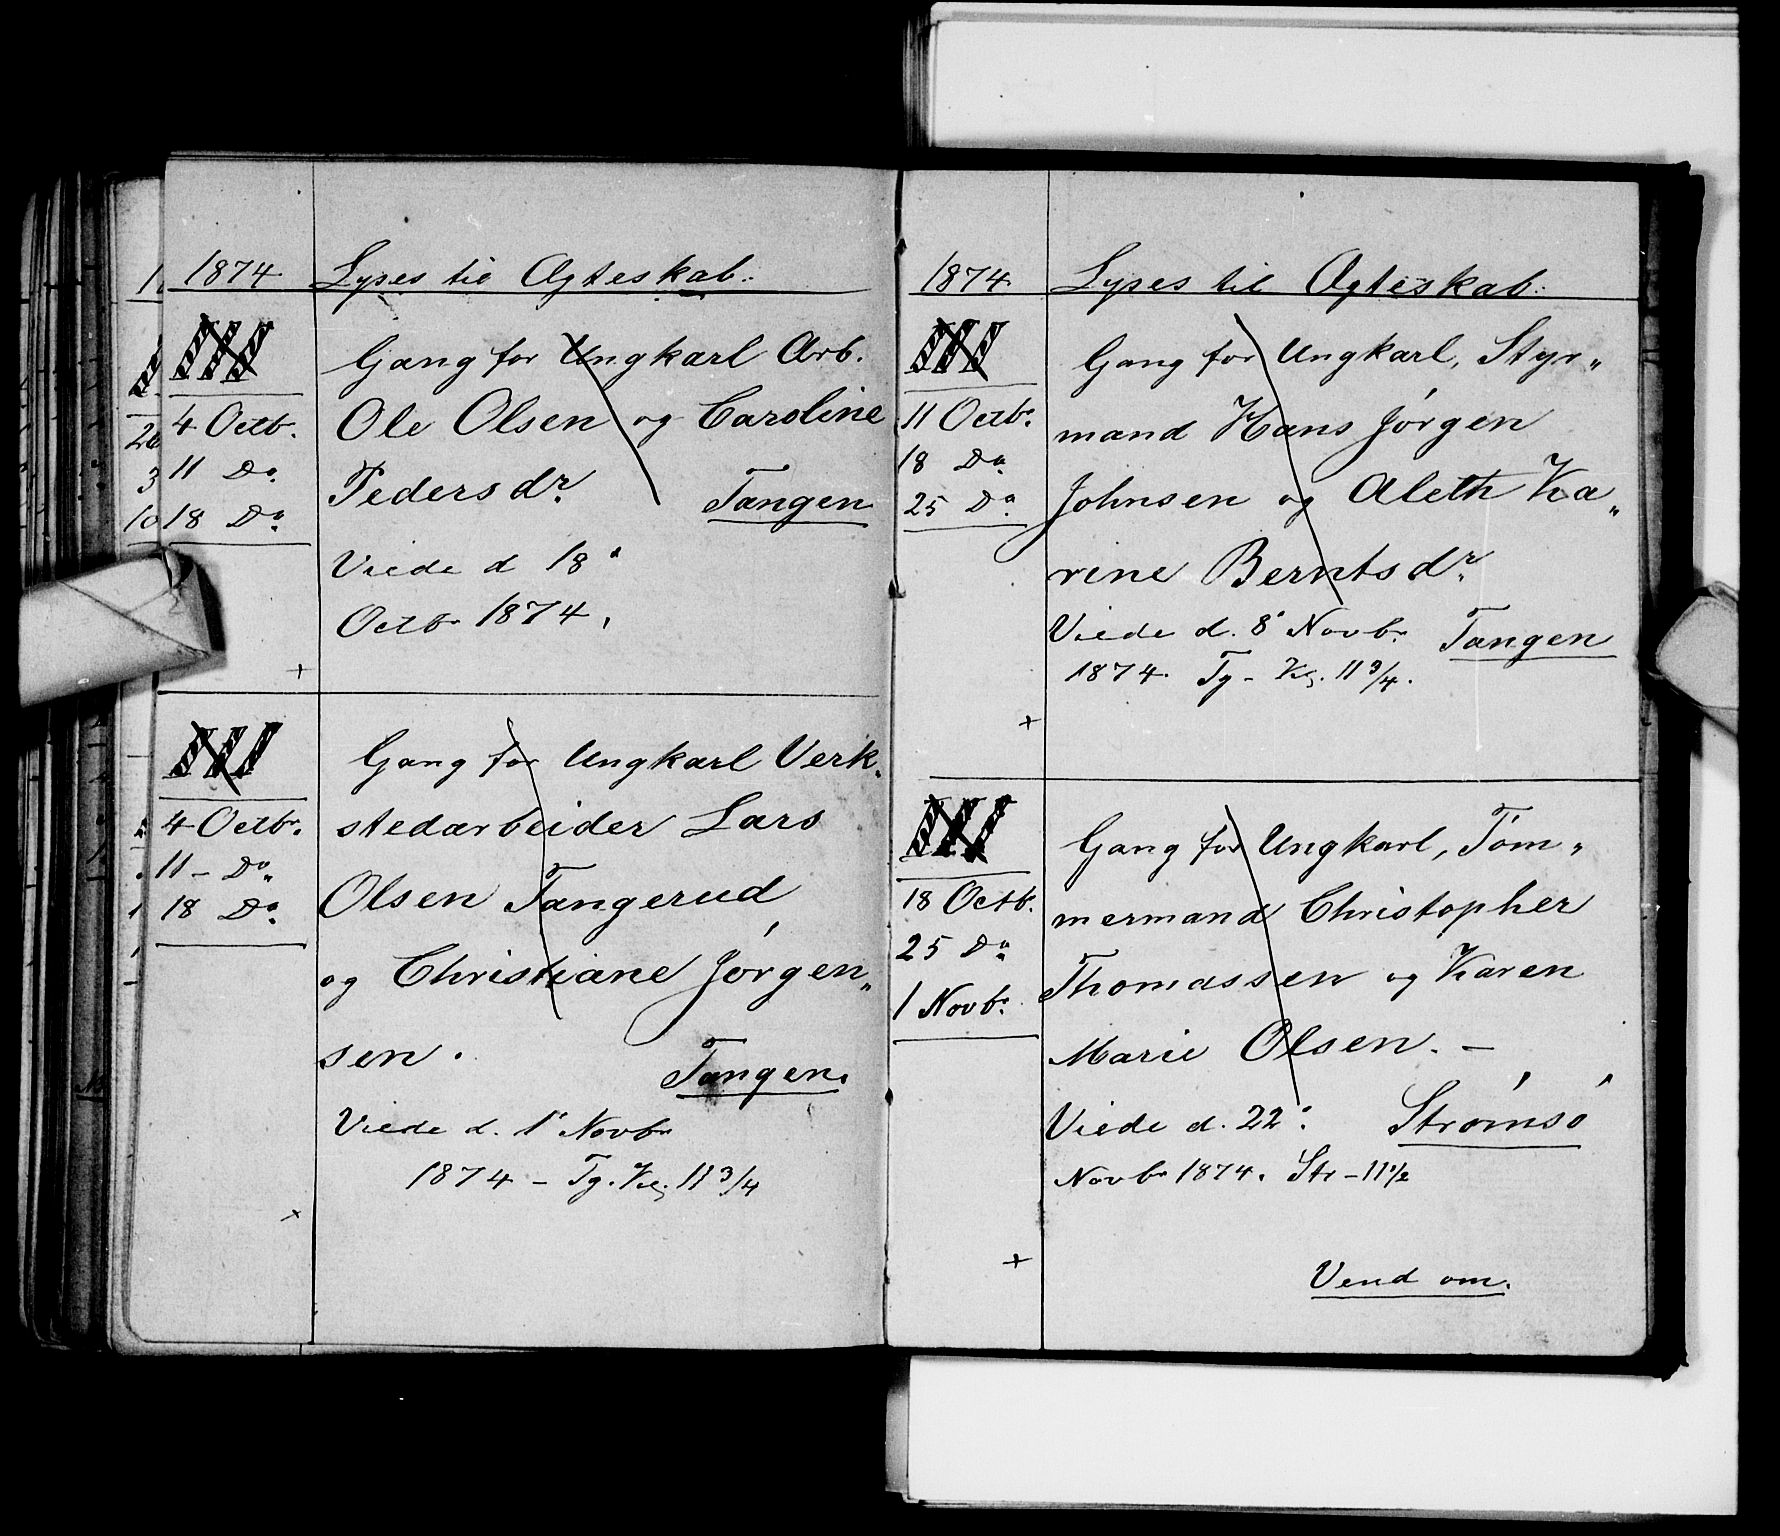 1874 Lyses til Ægteskab:
III
4 Octb.
11 Do
18 Do
Gang for Ungkarl Arb.
Ole Olsen og Caroline
Pedersdr.
Tangen
Viede d 18
Octbr 1874.
III
4 Octbr.
11 - Do
18 Do
Gang for Ungkarl Verk„
stedarbeider Lars
Olsen Tangerud
og Christiane Jørgen„
sen.
Tangen.
Viede d. 1' Novbr
1874 - Tg. Kl. 11 3/4
1874 Lyses til Ægteskab:
III
11 Octb.
18 Do
25 Do
Gang for Ungkarl, Styr„
mand Hans Jørgen
Johnsen og Aleth Ka„
rine Berntsdr.
Viede d. 8' Novbr. Tangen
1874. Tg - Kl. 11 3/4.
III
18 Octb.
25 Do
1 Novb.
Gang for Ungkarl, Tøm„
mermand Christopher
Thomassen og Karen
Marie Olsen. -
Viede d. 22' Strømsø
Novbr 1874. Str - 11 1/2
Vend om.